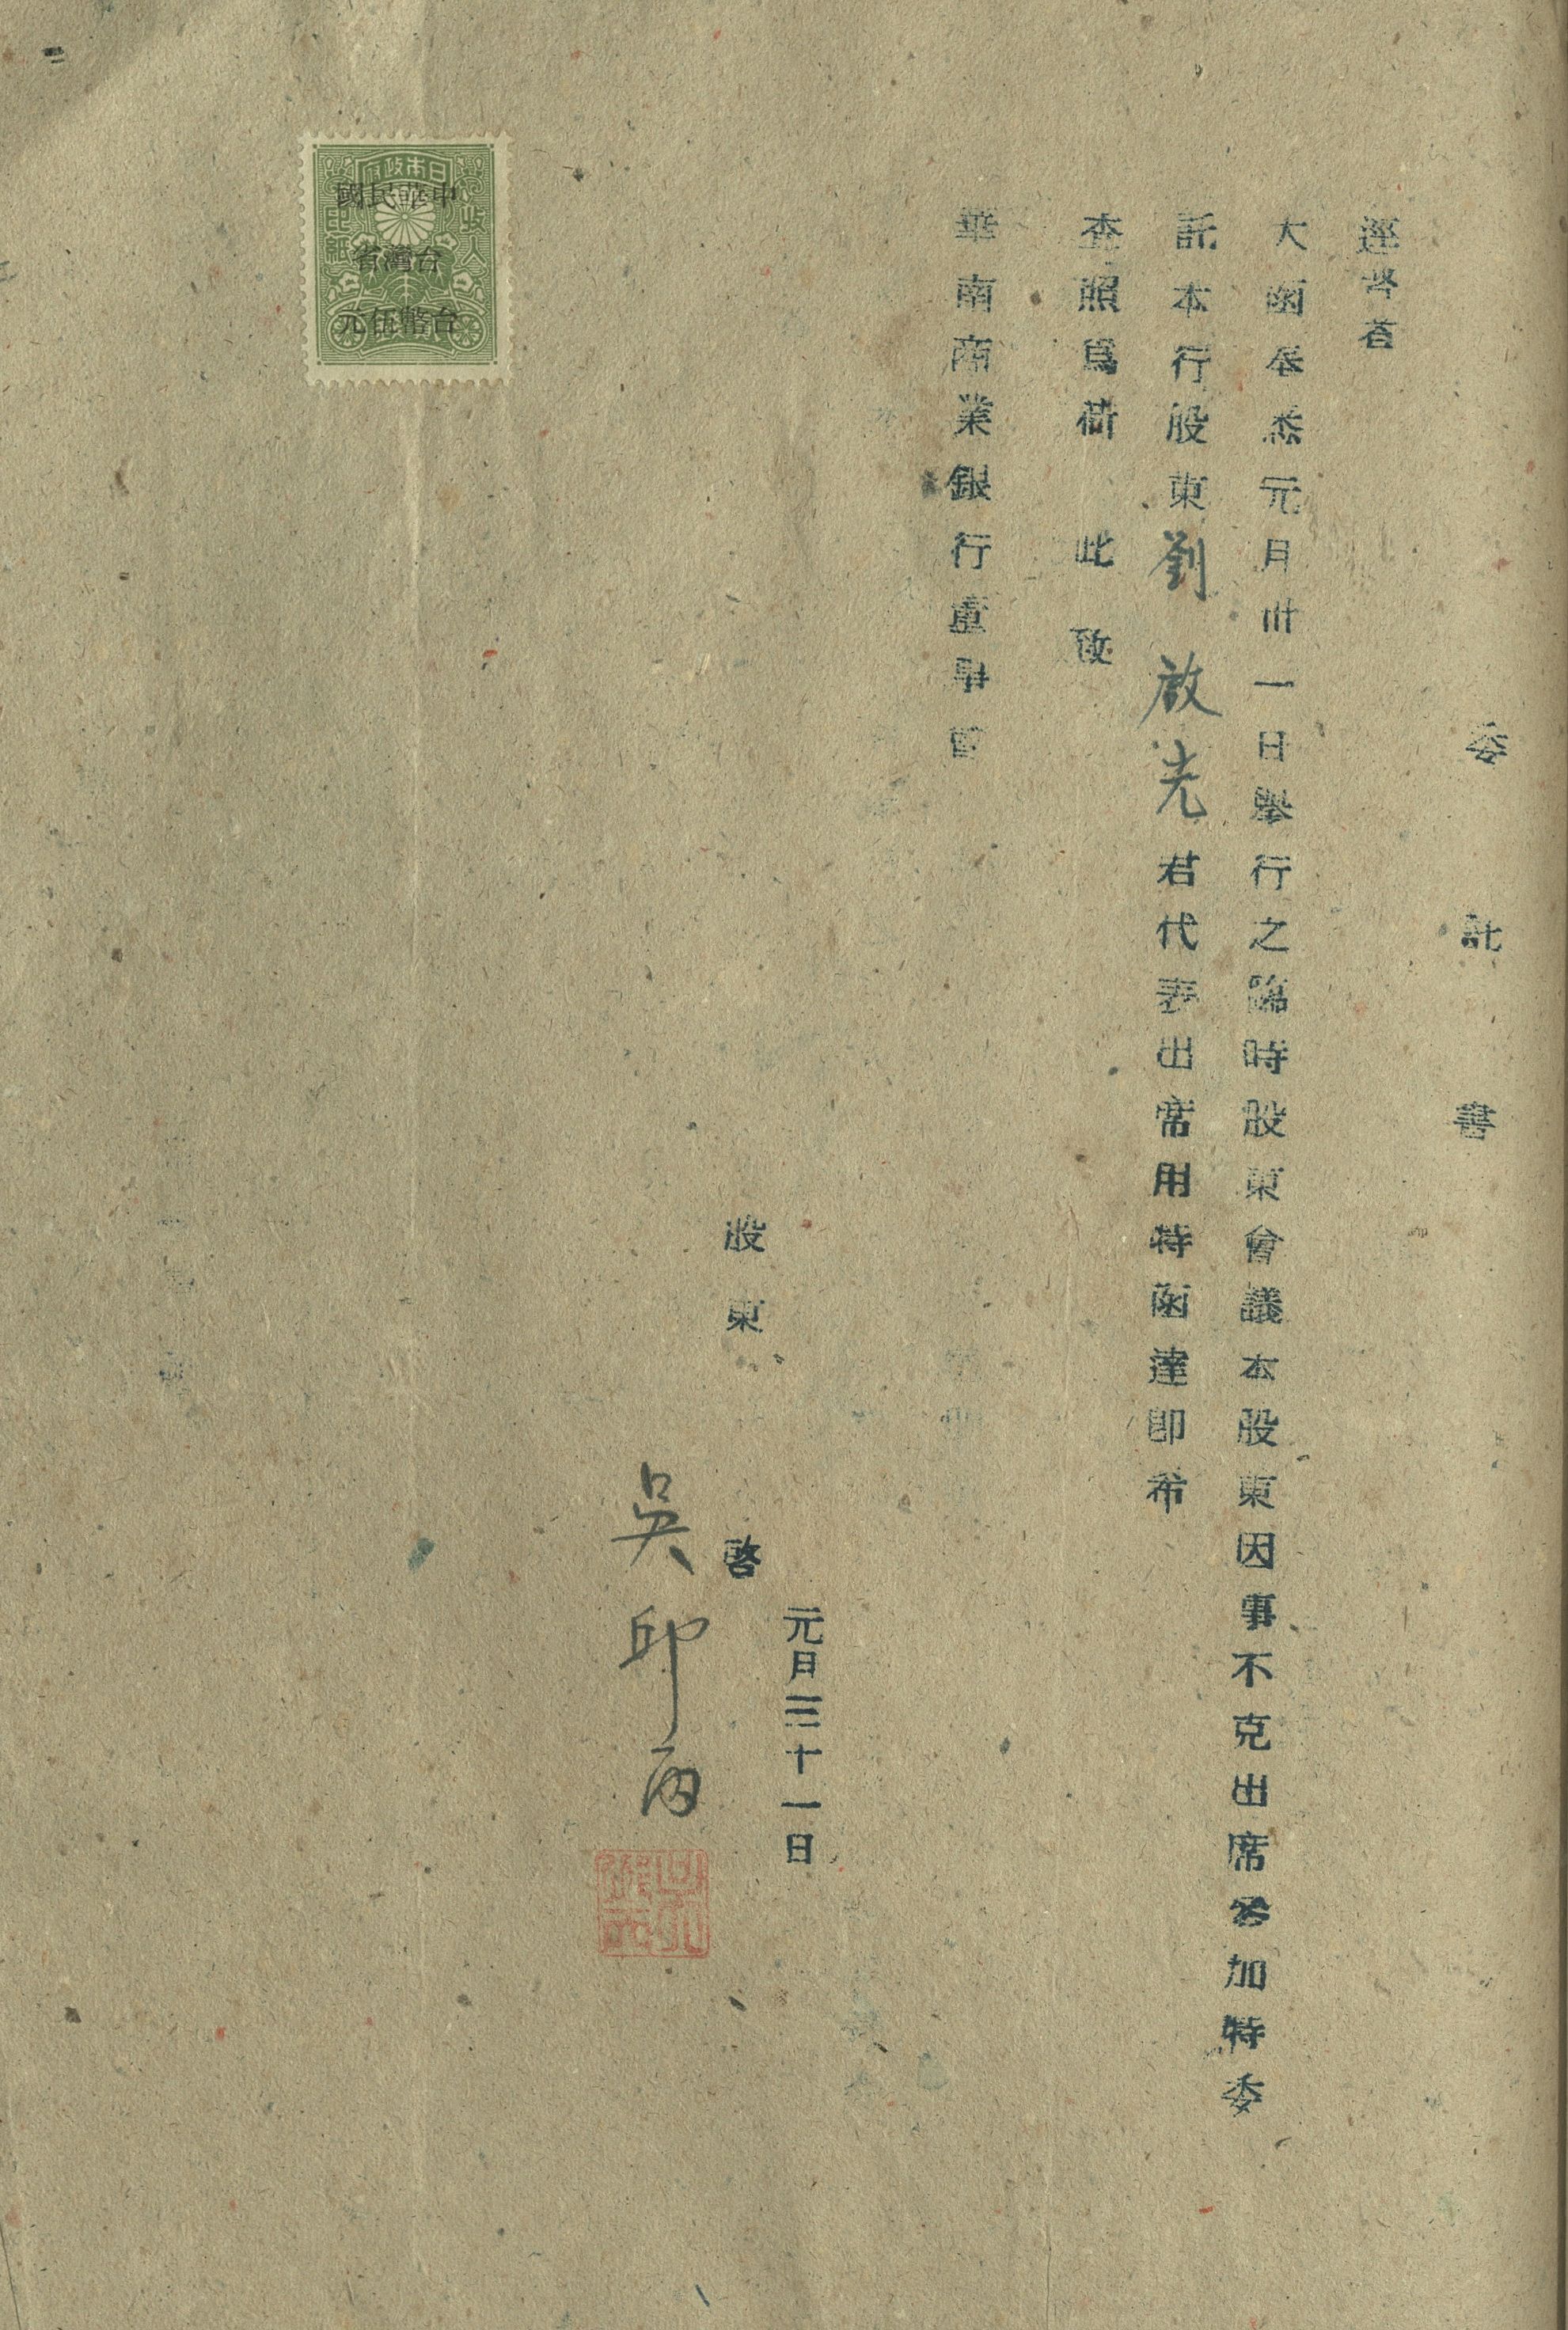 委託書
逕啓者
大函奉悉元月卅一日舉行之臨時股東會議本股東因事不克出席參加特委
託本行股東劉啟光君代表出席用特函達即希
查照爲荷 此致
華南商業銀行董事會
元月三十一日
股東 啓
吳
日本政府
收入
印紙
中華民國
台灣省
台幣伍元